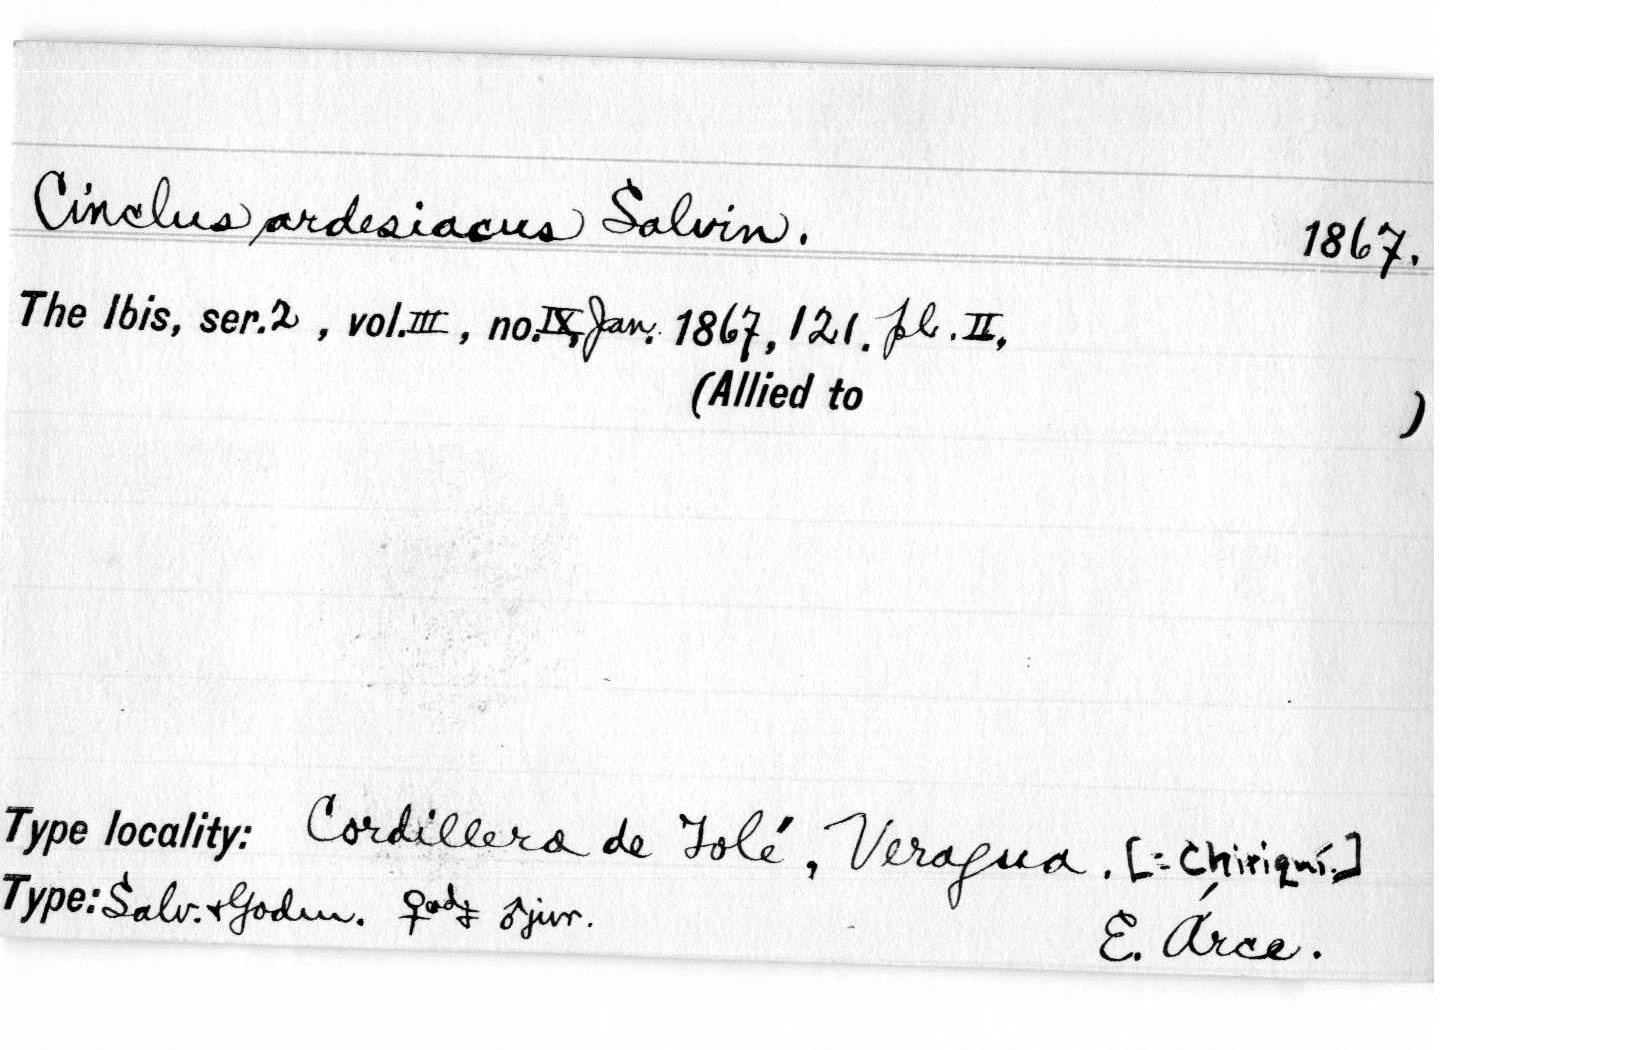 Cinclus ardesiacus Salvin. 1867.
The Ibis, ser.2, vol.III, no.IX, Jan. 1867, 121. pl. II.
(Allied to )
Type locality: Cordillera de Tolé, Veragua. [= Chiriquí.]
Type: Salv. & Godm. ♀ad & ♂juv. E. Árce.